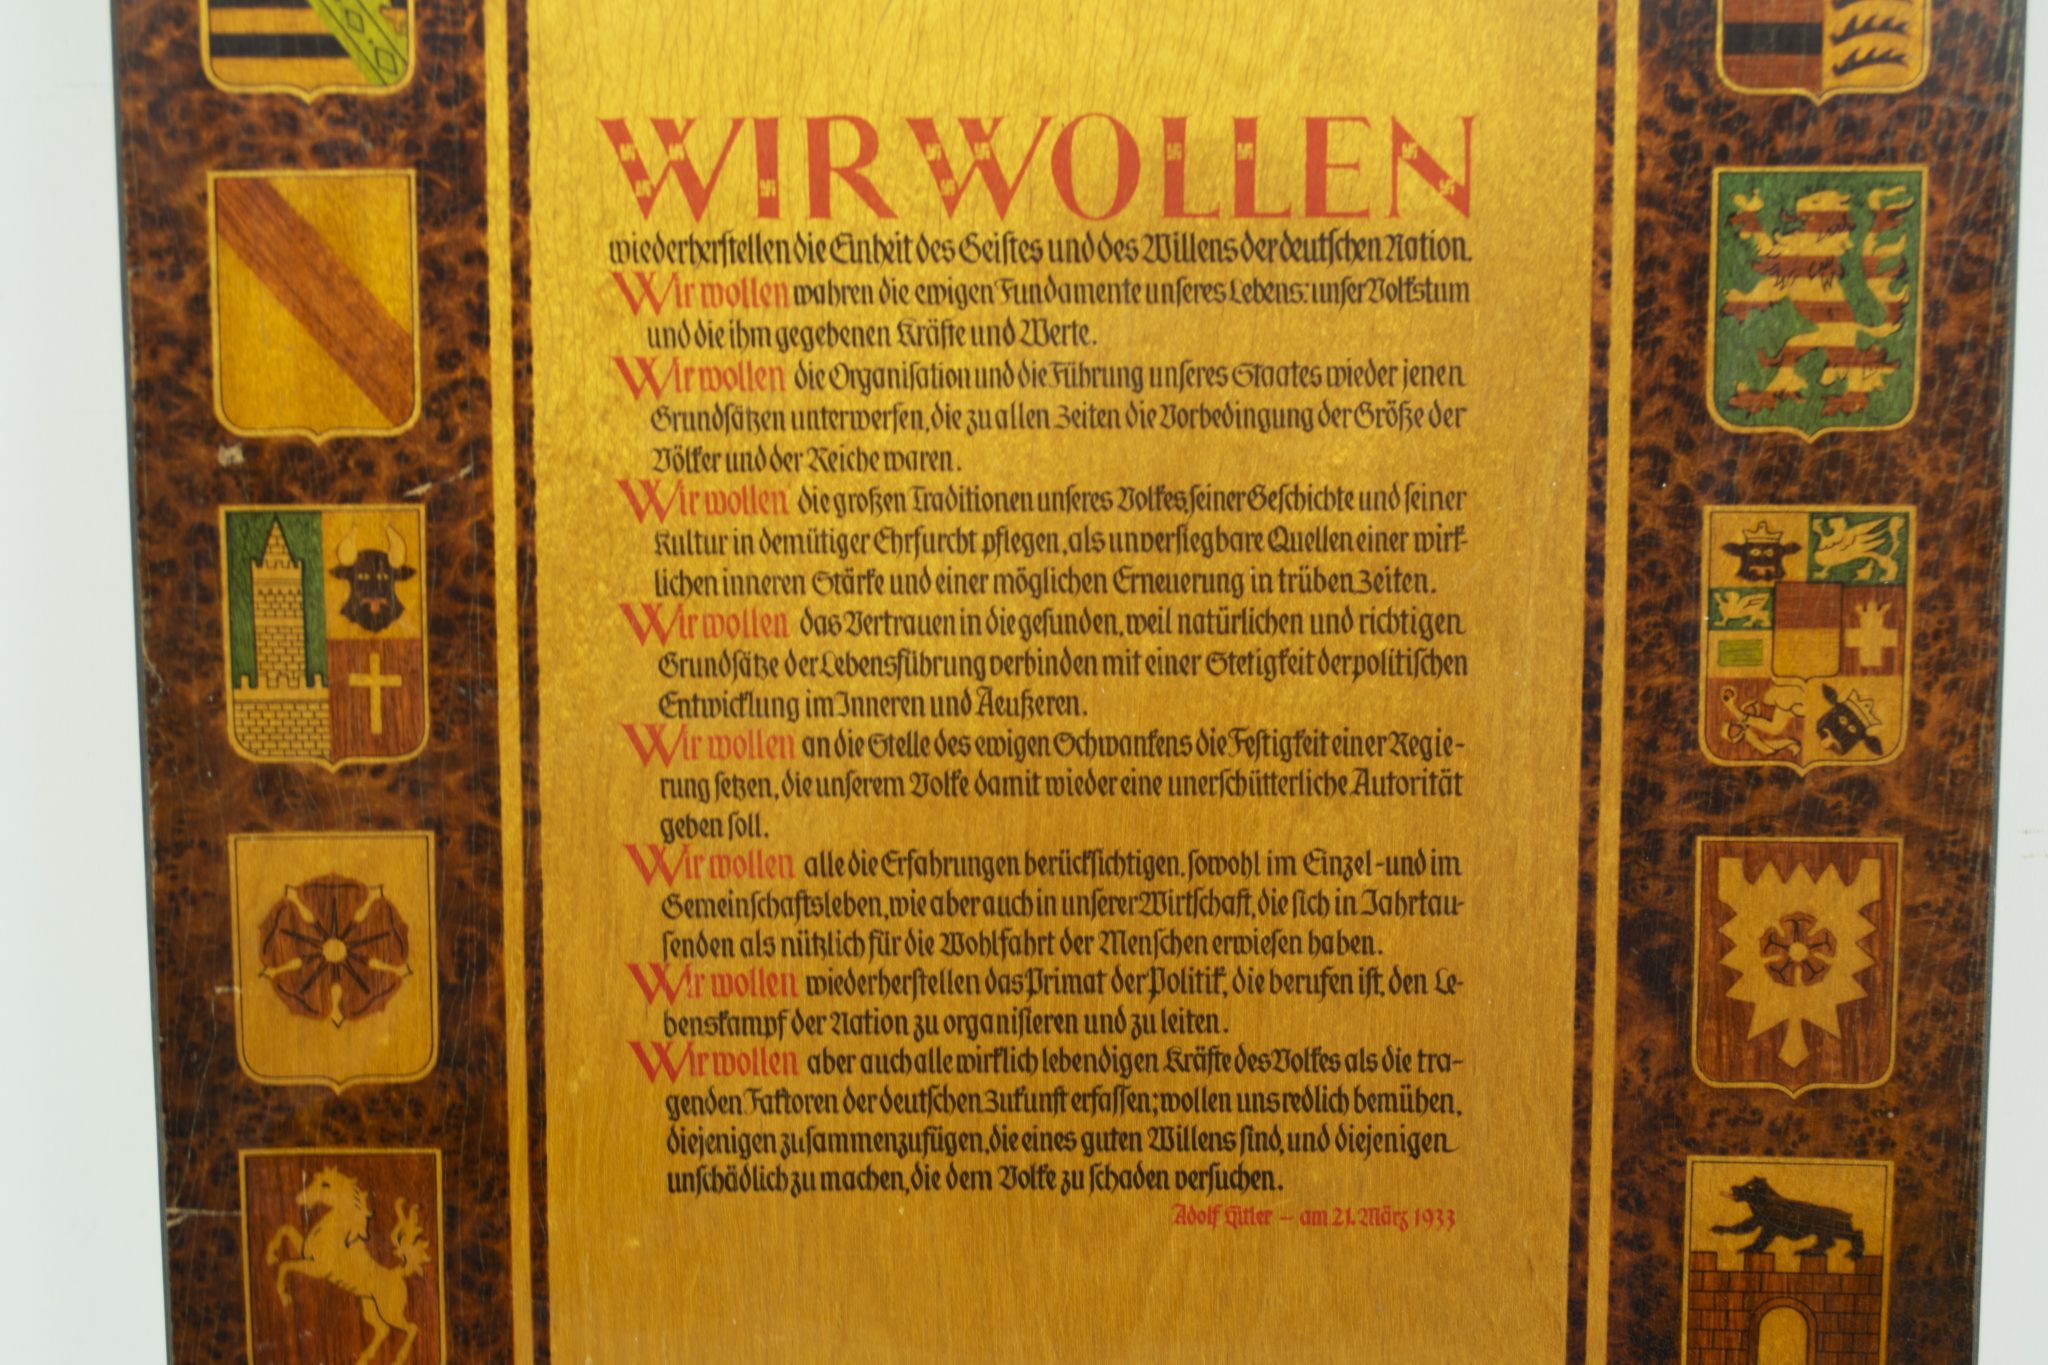 WIR WOLLEN
wiederherstellen die Einheit des Geistes und des Willens der deutschen Nation.
Wir wollen wahren die ewigen Fundamente unseres Lebens: unser Volkstum
und die ihm gegebenen Kräfte und Werte.
Wir wollen die Organisation und die Führung unseres Staates wieder jenen
Grundsätzen unterwerfen, die zu allen Zeiten die Vorbedingung der Größe der
Völker und der Reiche waren.
Wir wollen die großen Traditionen unseres Volkes, seiner Geschichte und seiner
Kultur in demütiger Ehrfurcht pflegen, als unversiegbare Quellen einer wirk-
lichen inneren Stärke und einer möglichen Erneuerung in trüben Zeiten.
Wir wollen das Vertrauen in die gesunden, weil natürlichen und richtigen
Grundsätze der Lebensführung verbinden mit einer Stetigkeit der politischen
Entwicklung im Inneren und Aeußeren.
Wir wollen an die Stelle des ewigen Schwankens die Festigkeit einer Regie-
rung setzen, die unserem Volke damit wieder eine unerschütterliche Autorität
geben soll.
Wir wollen alle die Erfahrungen berücksichtigen, sowohl im Einzel- und im
Gemeinschaftsleben, wie aber auch in unserer Wirtschaft, die sich in Jahrtau-
senden als nützlich für die Wohlfahrt der Menschen erwiesen haben.
Wir wollen wiederherstellen das Primat der Politik, die berufen ist, den Le-
benskampf der Nation zu organisieren und zu leiten.
Wir wollen aber auch alle wirklich lebendigen Kräfte des Volkes als die tra-
genden Faktoren der deutschen Zukunft erfassen; wollen uns redlich bemühen,
diejenigen zusammenzufügen, die eines guten Willens sind, und diejenigen
unschädlich zu machen, die dem Volke zu schaden versuchen.
Adolf Hitler – am 21. März 1933